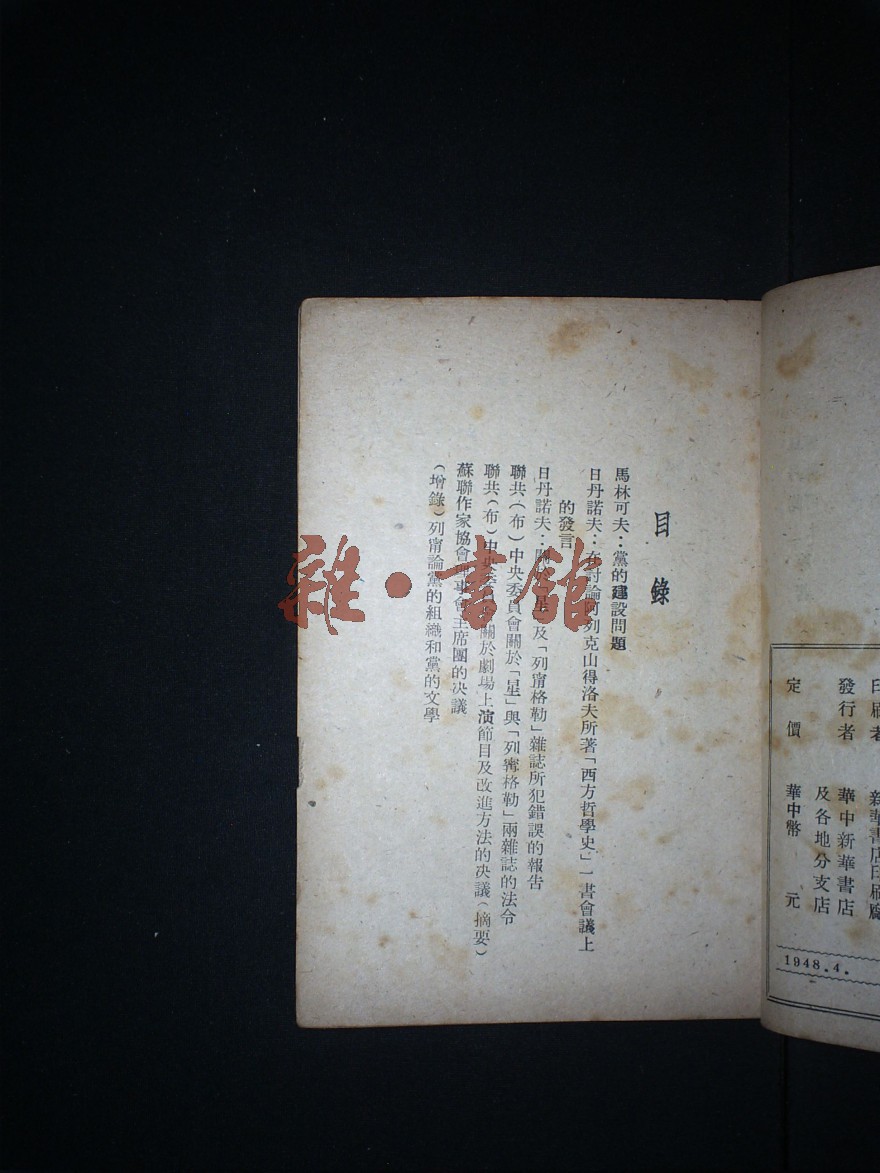 印刷者 新華書店印刷廠
發行者 華中新華書店
及各地分支店
定價 華中幣 元
1948.4.
目錄
馬林可夫：黨的建設問題
日丹諾夫：在討論阿列克山得洛夫所著「西方哲學史」一書會議上
的發言
日丹諾夫：關於「星」及「列甯格勒」雜誌所犯錯誤的報告
聯共（布）中央委員會關於「星」與「列甯格勒」兩雜誌的法令
聯共（布）中央委員會關於劇場上演節目及改進方法的決議（摘要）
蘇聯作家協會理事會主席團的決議
（增錄）列甯論黨的組織和黨的文學
雜·書館